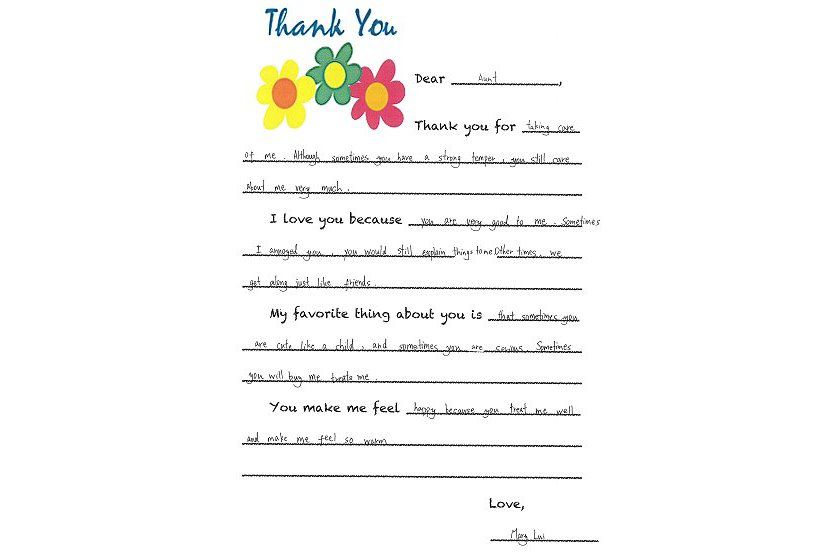 Thank You
Dear Aunt,
Thank you for taking care
of me. Although sometimes you have a strong temper, you still care
about me very much.
I love you because you are very good to me. Sometimes
I annoyed you, you would still explain things to me. Other times, we
get along just like friends.
My favorite thing about you is that sometimes you
are cute like a child, and sometimes you are serious. Sometimes
you will buy me treats me
You make me feel happy because you treat me well
and make me feel so warm
Love,
Mary Lui